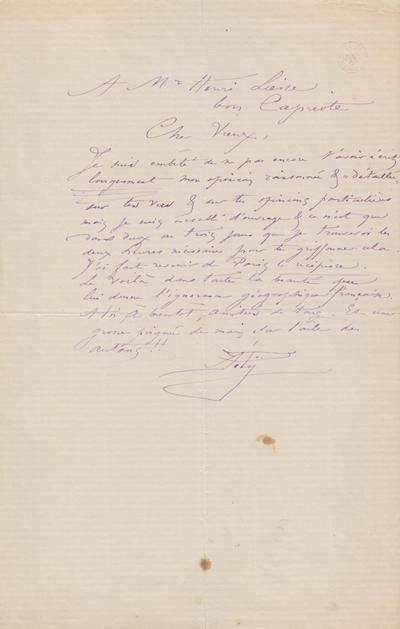 A Mr Henri Liesse
bon Capriote
Cher Vieux,
Je suis embêté de ne pas encore t'avoir écrit
longuement mon opinion raisonnée & détaillée
sur ton & sur tes opinions particulières
mais je suis accablé d'ouvrage & ce n'est que
dans deux ou trois jours que je trouverai les
deux heures nécessaires pour te griffonner cela.
J'ai fait revenir de Paris récépissé.
Le voilà dans toute la beauté que
lui donne l'ignorance géographique française.
A toi à bientôt, amitiés de tous. Et une
grosse poignée de main sur l'aile des
autans!!